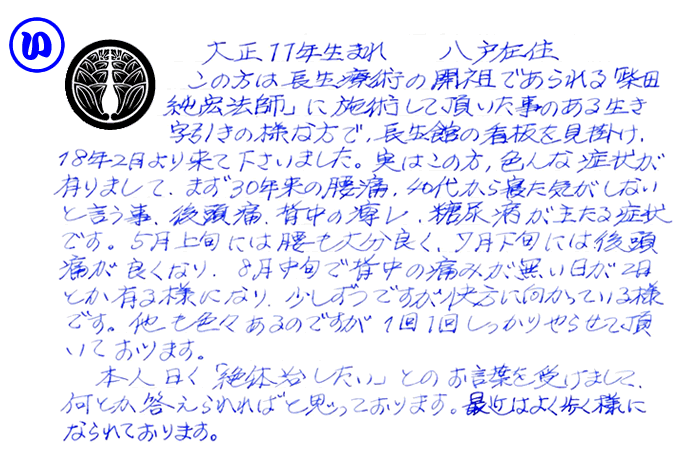 い
大正11年生まれ 八戸在住
この方は長生療術の開祖であられる「柴田
純宏法師」に施術して頂いた事のある生き
字引きの様な方で、長生館の看板を見掛け、
18年2月より来て下さいました。実はこの方、色んな症状が
有りまして、まず30年来の腰痛、40代から寝た気がしない
と言う事、後頭痛、背中の痺レ、糖尿病が主たる症状
です。5月上旬には腰も大分良く、7月下旬には後頭
痛が良くなり、8月中旬で背中の痛みが無い日が2日
とか有る様になり、少しずつですが快方に向かっている様
です。他も色々あるのですが1回1回しっかりやらせて頂
いております。
本人曰く「絶体治したい」とのお言葉を受けまして、
何とか答えられればと思っております。最近はよく歩く様に
なられております。